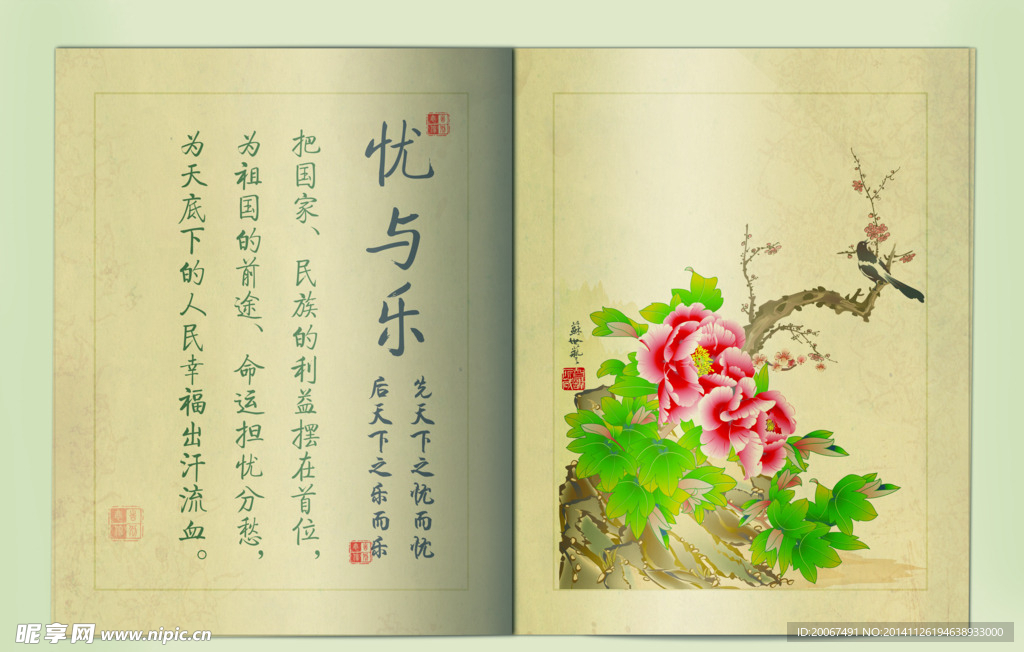 忧与乐
先天下之忧而忧
后天下之乐而乐
把国家、民族的利益摆在首位，
为祖国的前途、命运担忧分愁，
为天底下的人民幸福出汗流血。
昵享网 www.nipic.cn
ID:20067491 NO:20141126194638933000